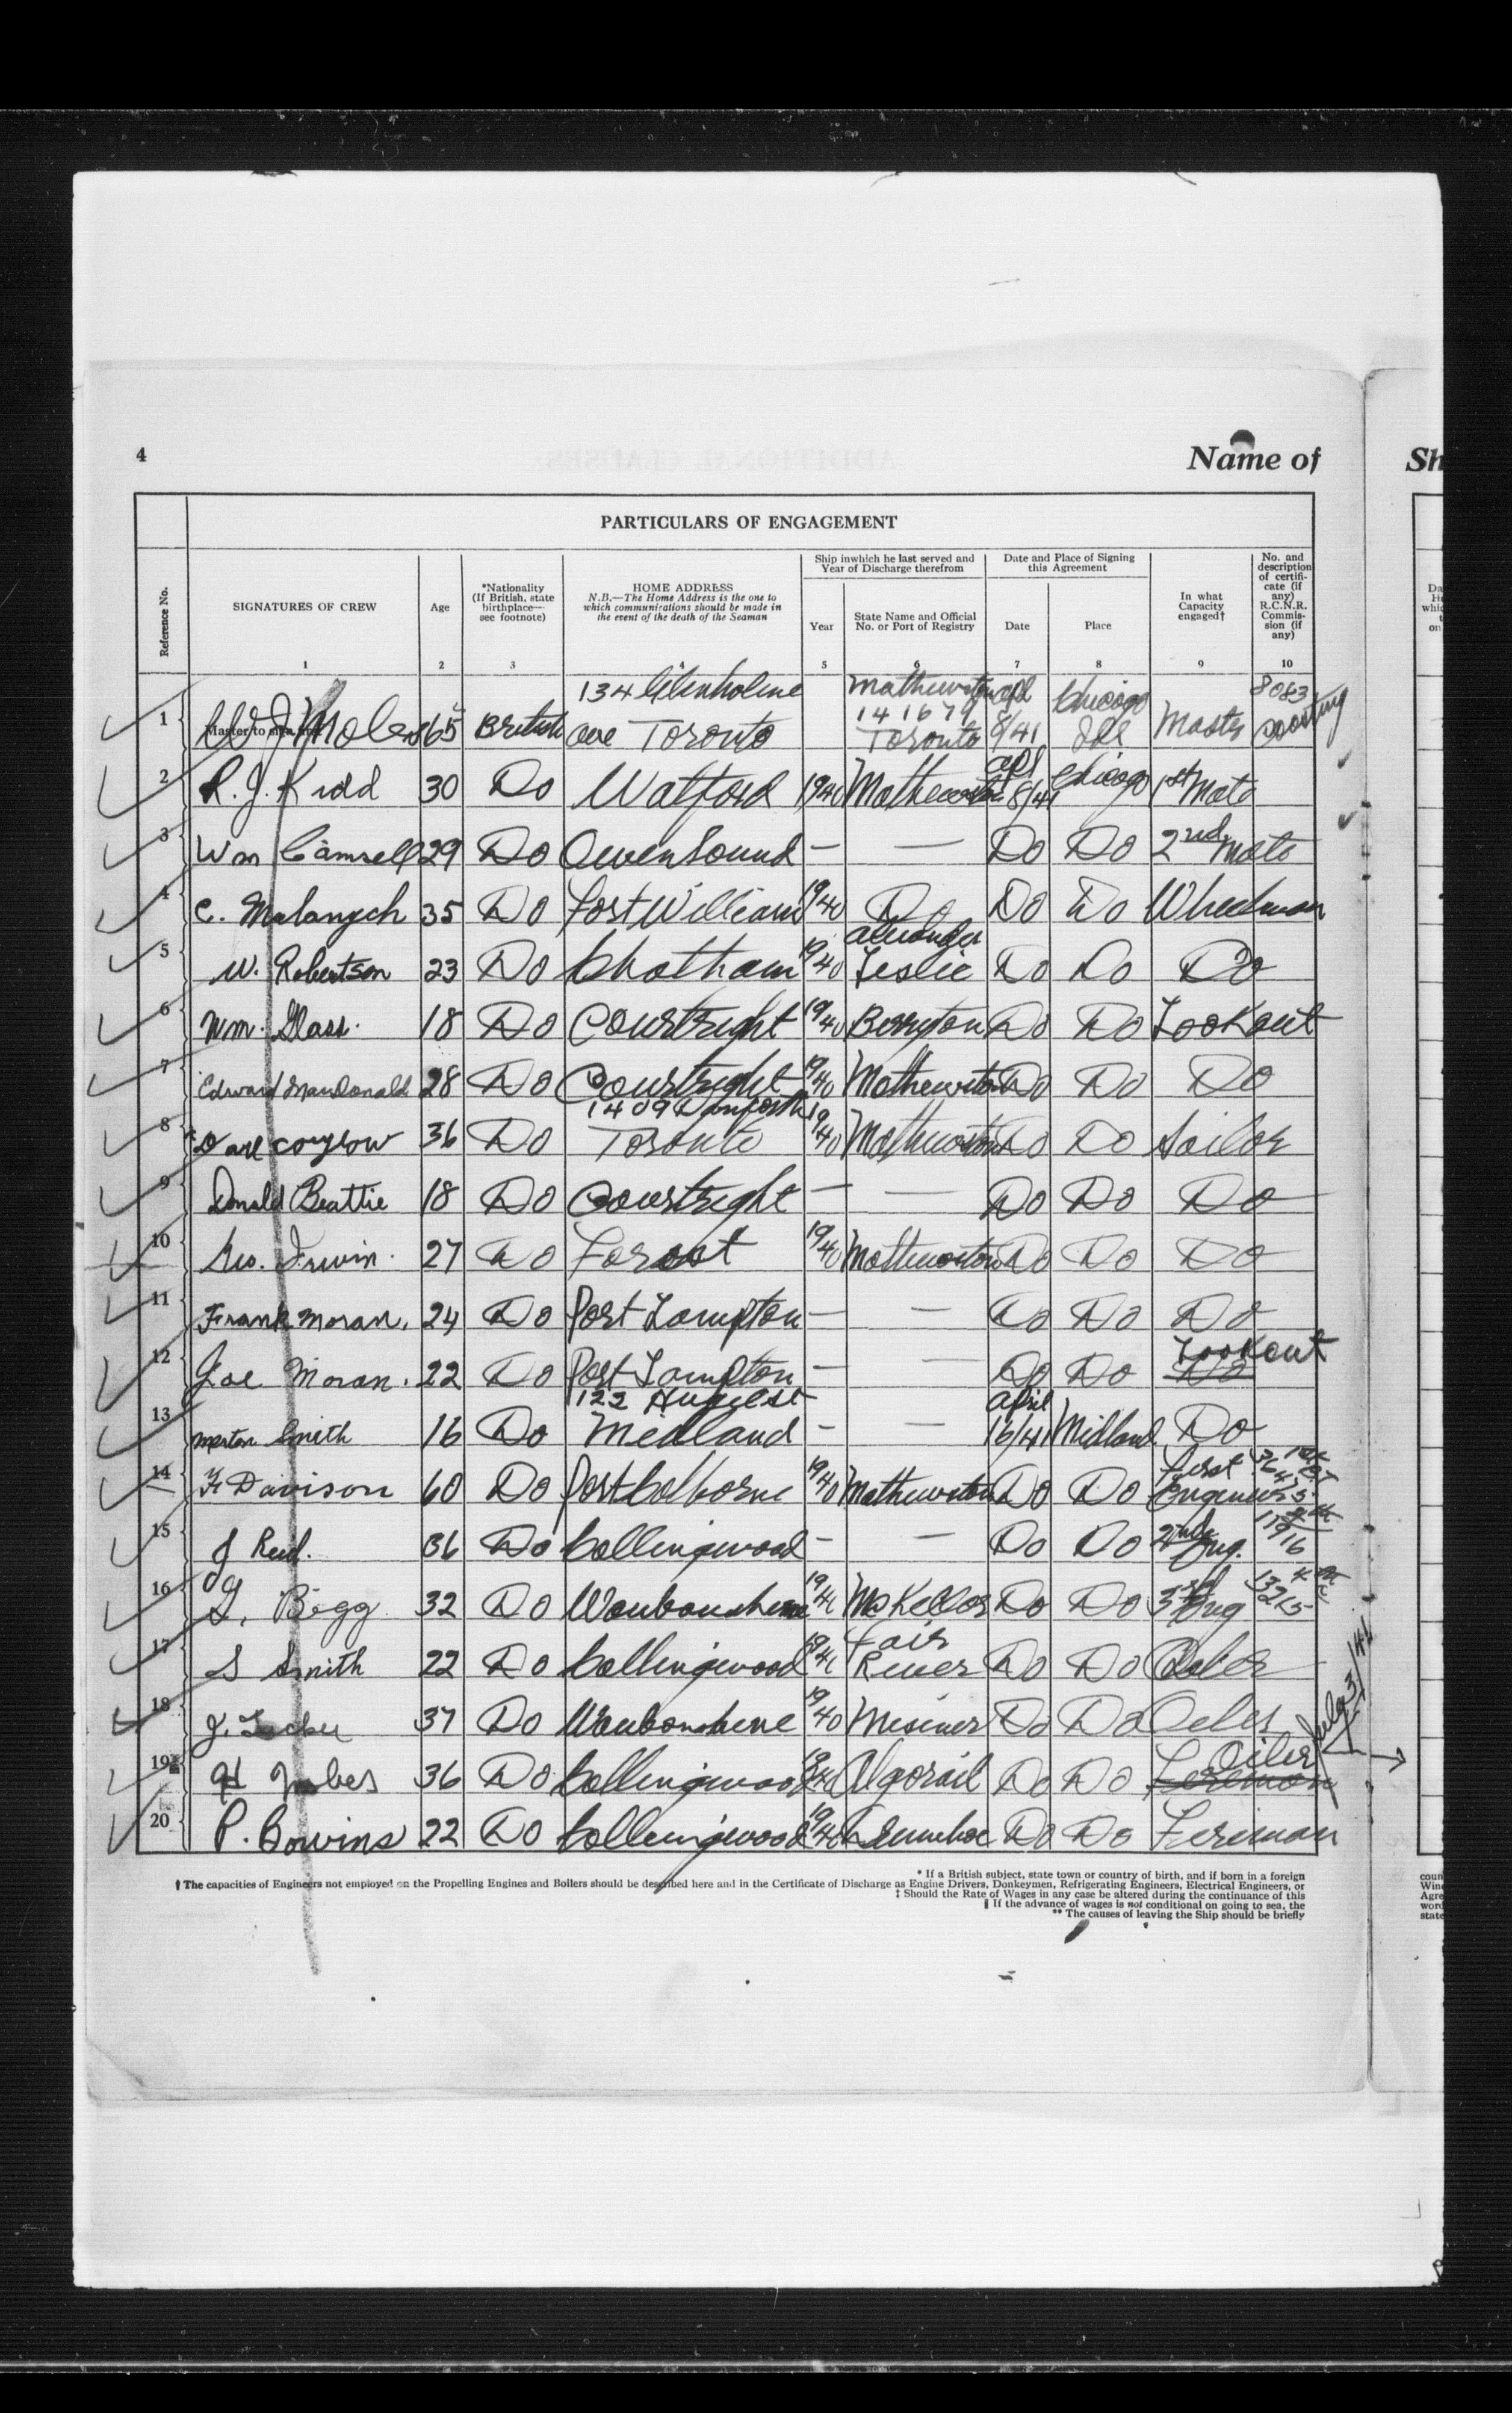 4
Name of
Sh
PARTICULARS OF ENGAGEMENT
Reference No.
SIGNATURES OF CREW
Age
*Nationality
(If British, state
birthplace—
see footnote)
HOME ADDRESS
N.B.—The Home Address is the one to
which communications should be made in
the event of the death of the Seaman
Ship in which he last served and
Year of Discharge therefrom
Year
State Name and Official
No. or Port of Registry
Date and Place of Signing
this Agreement
Date
Place
In what
Capacity
engaged†
No. and
description
of certifi-
cate (if
any)
R.C.N.R.
Commis-
sion (if
any)
1 2 3 4 5 6 7 8 9 10
134 Glenholme Mathewston apl Chicago 8083
1 65 British ave Toronto 141679 Toronto 8/41 Ill Master
Master to sign first
2 R. J. Kidd 30 Do Watford 1940 Mathewston apl 8/41 Chicago 1st Mate
3 Wm Camsell 29 Do Owen Sound — — Do Do 2nd Mate
4 C. Malangch 35 Do Fort William 1940 Do Do Do Wheelman
5 W. Robertson 23 Do Chatham 1940 Leslie Do Do Do
6 Wm. Glass. 18 Do Courtright 1940 Berryton Do Do Lookout
7 Edward MacDonald 28 Do Courtright 1940 Mathewston Do Do Do
1409 Danforth
8 36 Do Toronto 1940 Mathewston Do Do Sailor
9 Donald Beattie 18 Do Courtright — — Do Do Do
10 Geo. Irwin. 27 Do Forest 1940 Mathewston Do Do Do
11 Frank Moran. 24 Do Port Lampton — — Do Do Do
12 Joe Moran. 22 Do Port Lampton — — Do Do Do Lookout
122
13 Merton Smith 16 Do Midland - — April 16/41 Midland Do
14 F Davison 60 Do Port Colborne 1940 Mathewston Do Do First Engineer
15 J Reid. 36 Do Collingwood - — Do Do 2nd Eng. 11916
16 Begg 32 Do Waubaushene 1941 McKellor Do Do 3rd Eng 13215
17 S Smith 22 Do Collingwood 1941 River Do Do Oiler
18 37 Do Waubaushene 1940 Do Do Oiler
19 36 Do Collingwood 1940 Algorail Do Do Fireman Oiler July 3/41
20 P. Cowins 22 Do Collingwood 1940 Do Do Fireman
* If a British subject, state town or country of birth, and if born in a foreign
† The capacities of Engineers not employed on the Propelling Engines and Boilers should be described here and in the Certificate of Discharge as Engine Drivers, Donkeymen, Refrigerating Engineers, Electrical Engineers, or
‡ Should the Rate of Wages in any case be altered during the continuance of this
‖ If the advance of wages is not conditional on going to sea, the
** The causes of leaving the Ship should be briefly
coun
Win
Agre
word
state